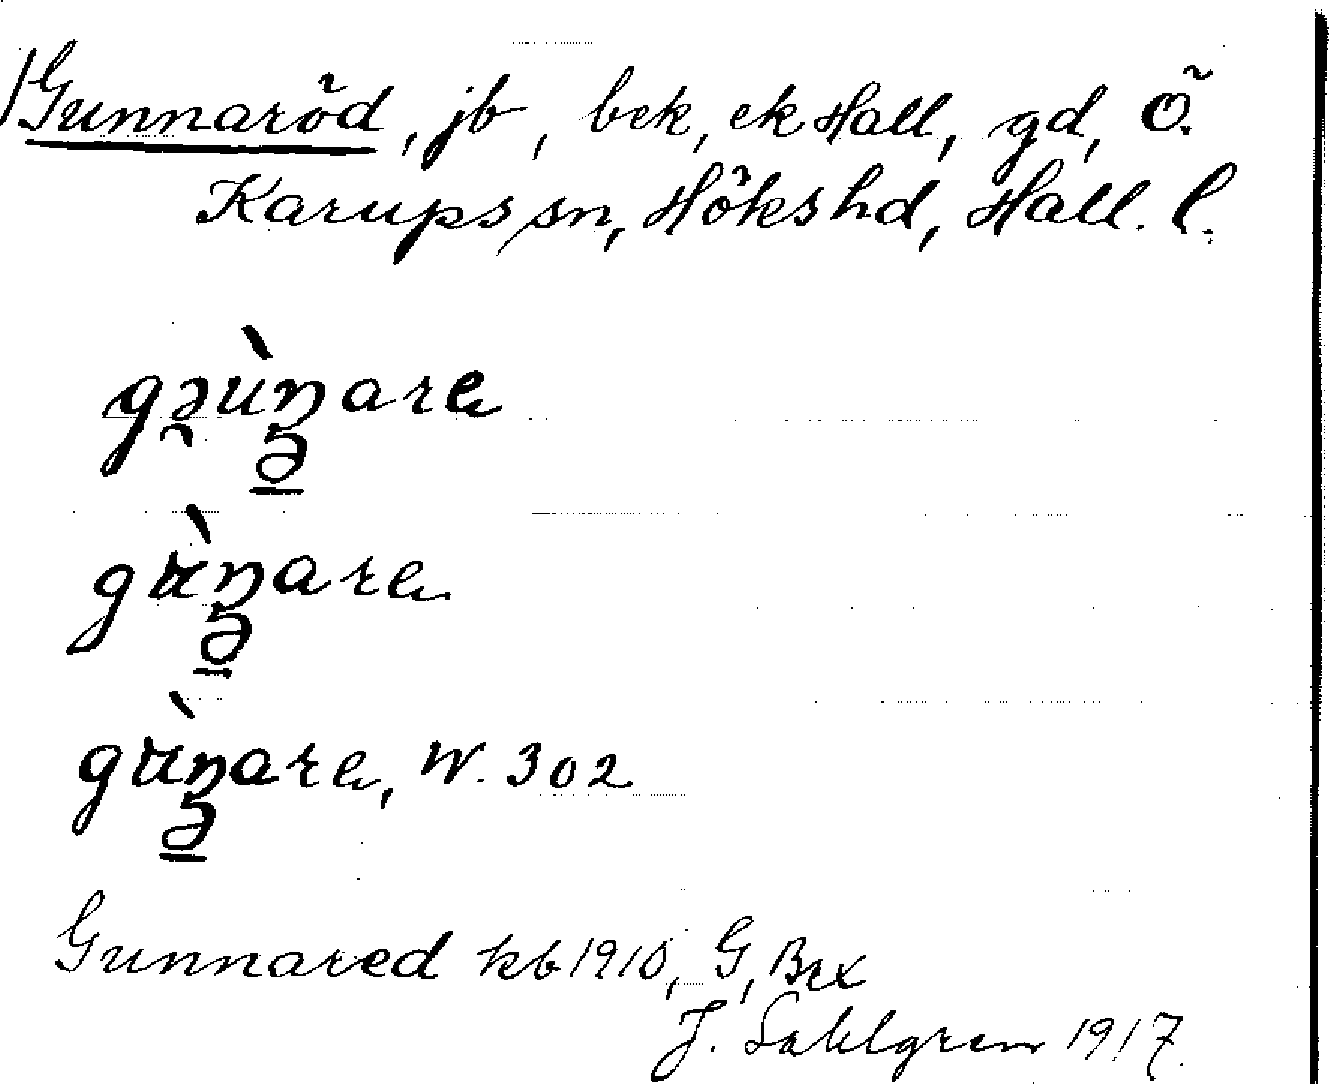 Gunnaröd, jb, bek, ek Hall, gd, Ö.
Karups sn, Höks hd, Hall. l.
gə̯ùn̥are
gùn̥are
gùn̥are, W. 302
Gunnared kb 1910, G, Bex
J. Sahlgren 1917.